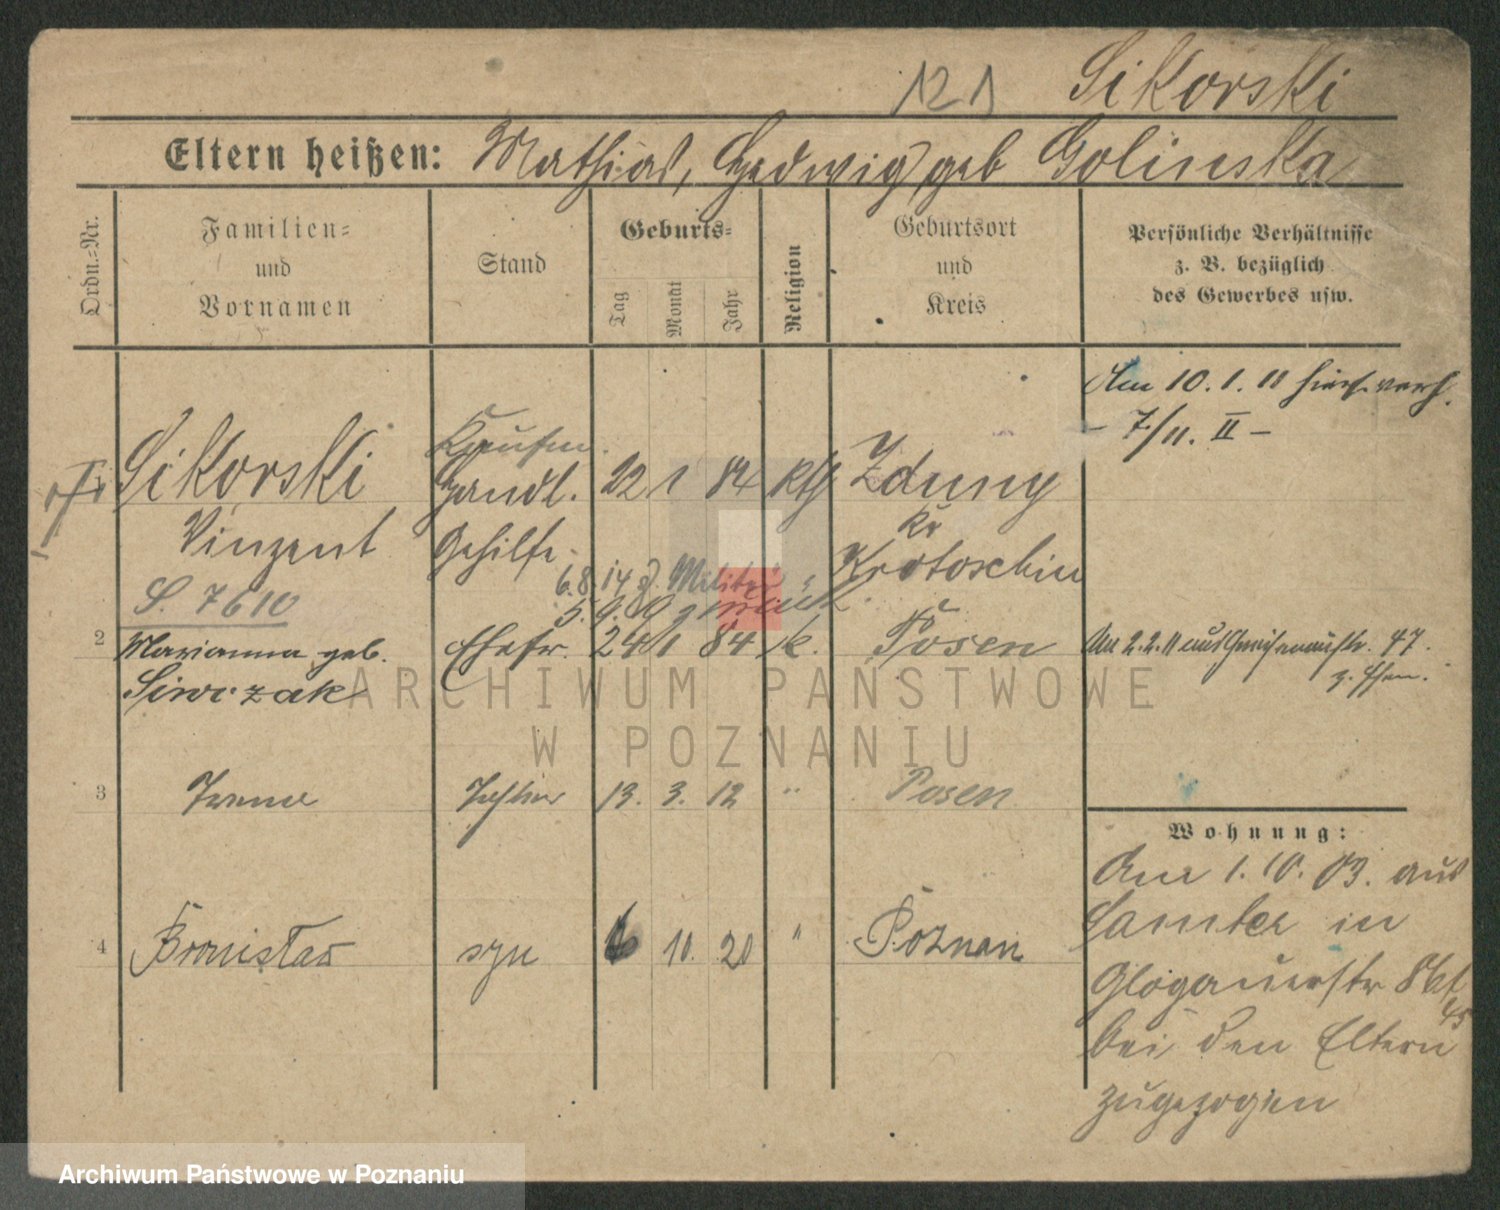 121 Sikorski
Eltern heißen: Mathias, Hedwig geb Golinska
Ordn.-Nr.
Familien-
und
Vornamen
Stand
Geburts-
Tag
Monat
Jahr
Religion
Geburtsort
und
Kreis
Persönliche Verhältnisse
z. B. bezüglich
des Gewerbes usw.
Am 10.1.11 hier verh.
- 7/11. II -
Kaufm.
Sikorski Handl. 22 1 84 kth Zduny
Vinzent Gehilfe Kr
Krotoschin
6.8.14 z. Militär
S. 7610 zurück
2 Marianna geb. Ehefr. 24 1 84 k. Posen
Siwczak
Am 2.2.11 aus 47.
z. Ehem.
3 Irene Tochter 13. 3. 12 " Posen
4 Bronisław syn 6 10. 20 " Poznań
Wohnung:
Am 1.10.03. aus
Samter in
Glogauerstr 86
bei den Eltern
zugezogen
ARCHIWUM PAŃSTWOWE
W POZNANIU
Archiwum Państwowe w Poznaniu